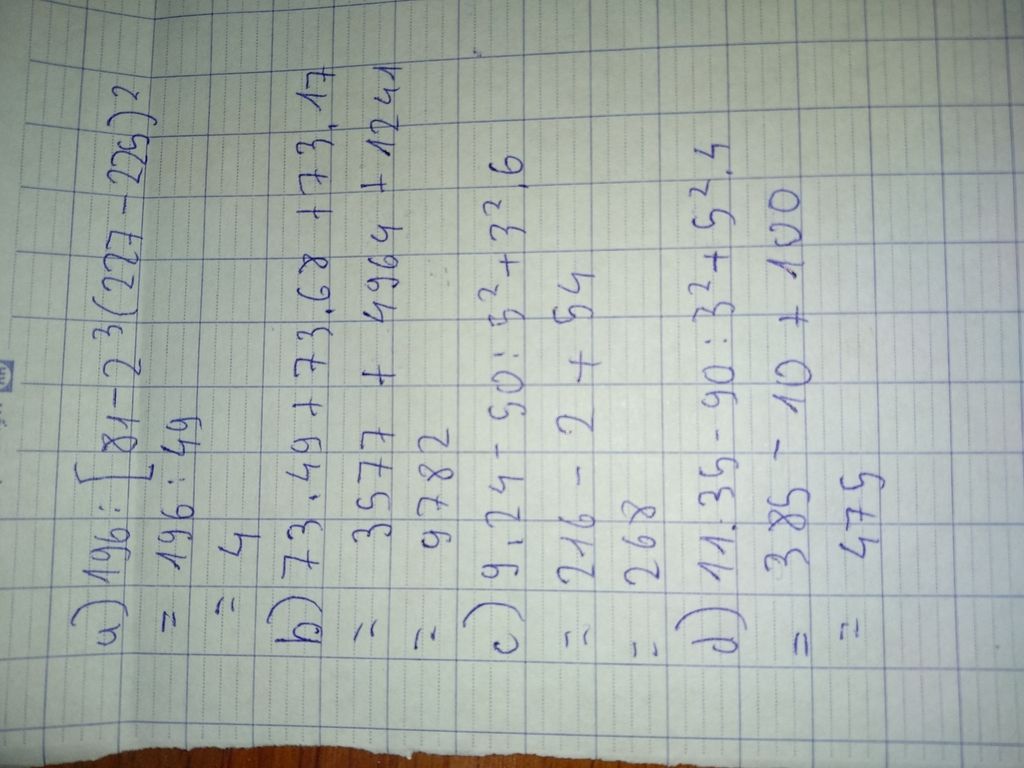 a) 196 : [ 81 - 2 ³ ( 227 - 225) 2
= 196 : 49
= 4
b) 73 . 49 + 73 . 68 + 73 . 17
= 3577 + 4964 + 1241
= 9782
c) 9 . 24 - 50 : 5² + 3² . 6
= 216 - 2 + 54
= 268
d) 11 . 35 - 90 : 3² + 5² . 4
= 385 - 10 + 100
= 475